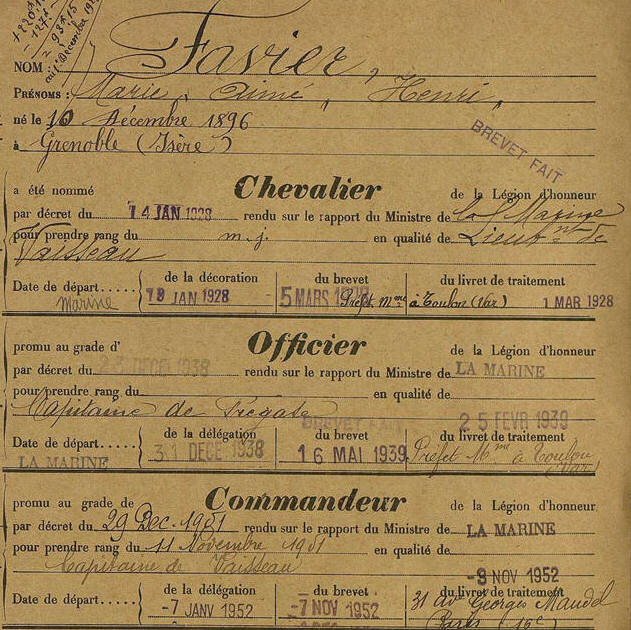 au 1er Décembre
NOM : Favier,
PRÉNOMS : Marie, Aimé, Henri,
né le 10 Décembre 1896
à Grenoble (Isère)
BREVET FAIT
a été nommé Chevalier de la Légion d'honneur
par décret du 14 JAN 1928 rendu sur le rapport du Ministre de la Marine
pour prendre rang du m. j. en qualité de Lieutnt de
Vaisseau
Date de départ..... de la décoration du brevet du livret de traitement
Marine 19 JAN 1928 5 MARS Préft. Mme à Toulon (Var) 1 MAR 1928
promu au grade d' Officier de la Légion d'honneur
par décret du 23 DECE 1938 rendu sur le rapport du Ministre de LA MARINE
pour prendre rang du en qualité de
Capitaine de Frégate BREVET FAIT 25 FEVR 1939
Date de départ..... de la délégation du brevet du livret de traitement
LA MARINE 31 DECE 1938 16 MAI 1939 Préfet Mme à Toulon
(Var)
promu au grade de Commandeur de la Légion d'honneur
par décret du 29 Dec. 1951 rendu sur le rapport du Ministre de LA MARINE
pour prendre rang du 11 Novembre 1951 en qualité de
Capitaine de Vaisseau -8 NOV 1952
Date de départ..... de la délégation du brevet du livret de traitement
-7 JANV 1952 -7 NOV 1952 31 av Georges Mandel
Paris 16e